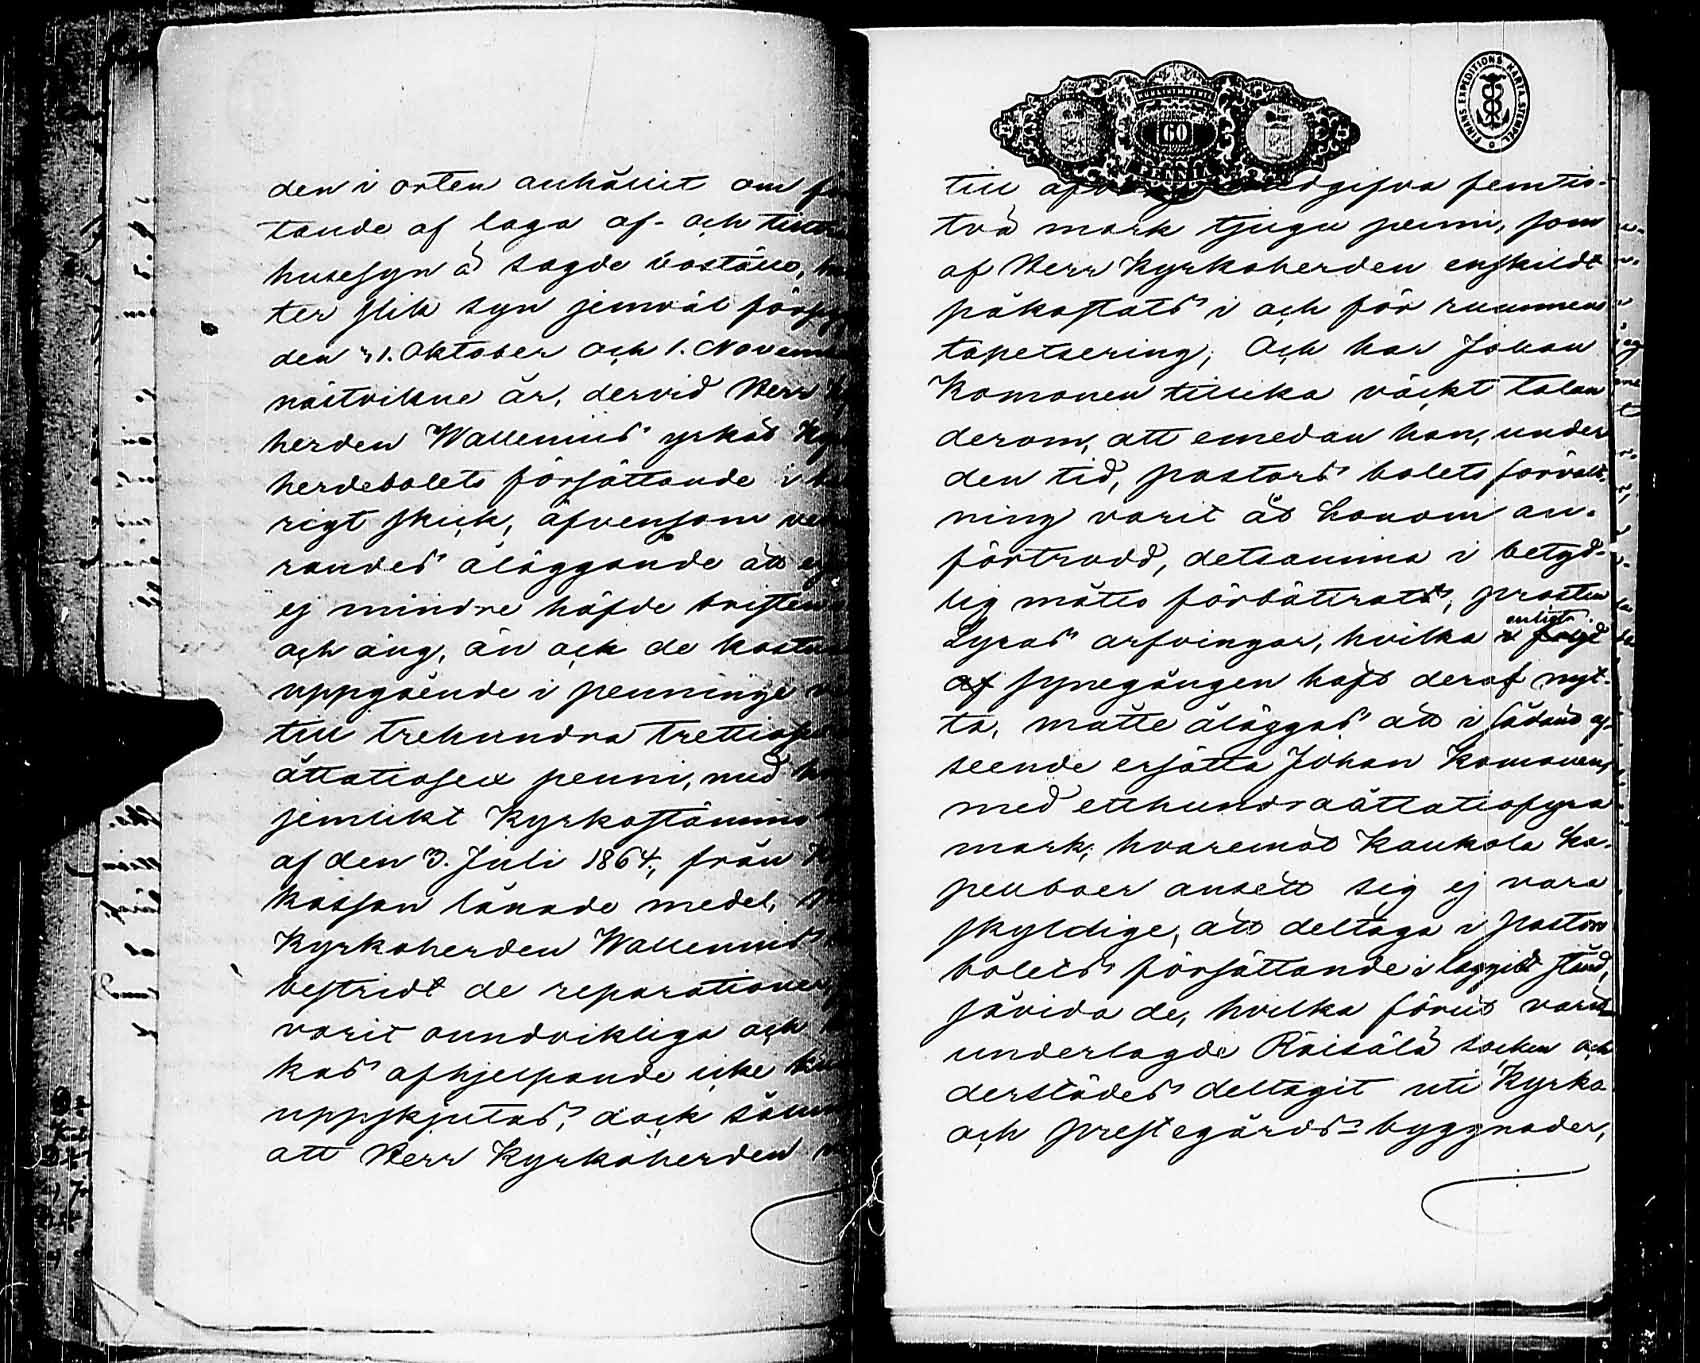 den i orten anhållit om
tande af laga af- och
husesyn å sagde boställe,
ter slik syn jemväl
den 31. Oktober och 1.
nästvikne år, dervid Herr
herden Wallenius yrkat
herdebolets försättande i
rigt skick, äfvensom
randes åläggande att
ej mindre häfde bristen
och äng, än ock de
uppgående i penninge
till trehundra
åttatiosex penni, med
jemlikt Kyrkostämmo
af den 3. Juli 1864, från
kassan lånade medel,
Kyrkoherden Wallenius
bestridt de reparationer,
varit oundvikliga och
kas afhjelpande icke
uppskjutas; dock
att Herr Kyrkoherden
60
PENNIÄ
FINSKA EXPEDITIONS KARTA STEMPEL
till femtio-
två mark tjugu penni, som
af Herr Kyrkoherden enskildt
påkostats i och för rummens
tapetsering; Och har Johan
Komonen tillika väckt talan
derom, att emedan han, under
den tid, pastors bolets förvalt-
ning varit åt honom an-
förtrodd, detsamma i betyd-
lig måtto förbättrat, prosten
enligt
Lyras arfvingar, hvilka
af synegången haft deraf nyt-
ta, måtte åläggas att i sådant af-
seende ersätta Johan Komonen,
med etthundraåttatiofyra
mark; hvaremot Kaukola ka-
pellboer ansett sig ej vara
skyldige, att deltaga i pastors
bolets försättande i laggildt stånd,
såvida de, hvilka förut varit
underlagde Räisälä socken och
derstädes deltagit uti Kyrko
och prestegårds-byggnader,